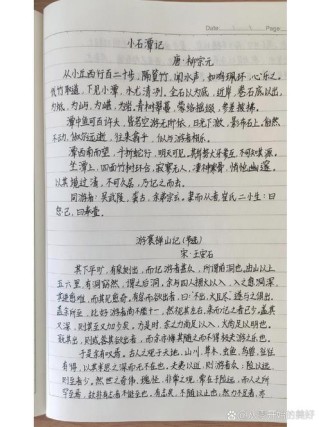 Date: Page:
小石潭记
唐·柳宗元
从小丘西行百二十步，隔篁竹，闻水声，如鸣珮环，心乐之。
伐竹取道，下见小潭，水尤清冽。全石以为底，近岸，卷石底以出，
为坻，为屿，为嵁，为岩。青树翠蔓，蒙络摇缀，参差披拂。
潭中鱼可百许头，皆若空游无所依，日光下澈，影布石上。佁然
不动，俶尔远逝，往来翕忽，似与游者相乐。
潭西南而望，斗折蛇行，明灭可见。其岸势犬牙差互，不可知其源。
坐潭上，四面竹树环合，寂寥无人，凄神寒骨，悄怆幽邃。
以其境过清，不可久居，乃记之而去。
同游者：吴武陵，龚古，余弟宗玄。隶而从者，崔氏二小生：曰
恕己，曰奉壹。
游褒禅山记（节选）
宋·王安石
其下平旷，有泉侧出，而记游者甚众，所谓前洞也。由山以上
五六里，有洞窈然，谓之后洞。余与四人拥火以入，入之愈深，
其进愈难，而其见愈奇。有怠而欲出者，曰：“不出，火且尽。”遂与之俱出。
盖余所至，比好游者尚不能十一，然视其左右，来而记之者已少。盖其
又深，则其至又加少矣。方是时，余之力尚足以入，火尚足以明也。
既其出，则或咎其欲出者，而余亦悔其随之而不得极夫游之乐也。
于是余有叹焉。古人之观于天地、山川、草木、虫鱼、鸟兽，往往
有得，以其求思之深而无不在也。夫夷以近，则游者众；险以远，
则至者少。而世之奇伟、瑰怪、非常之观，常在于险远，而人之所
罕至焉，故非有志者不能至也。有志矣，不随以止也，然力不足者，亦